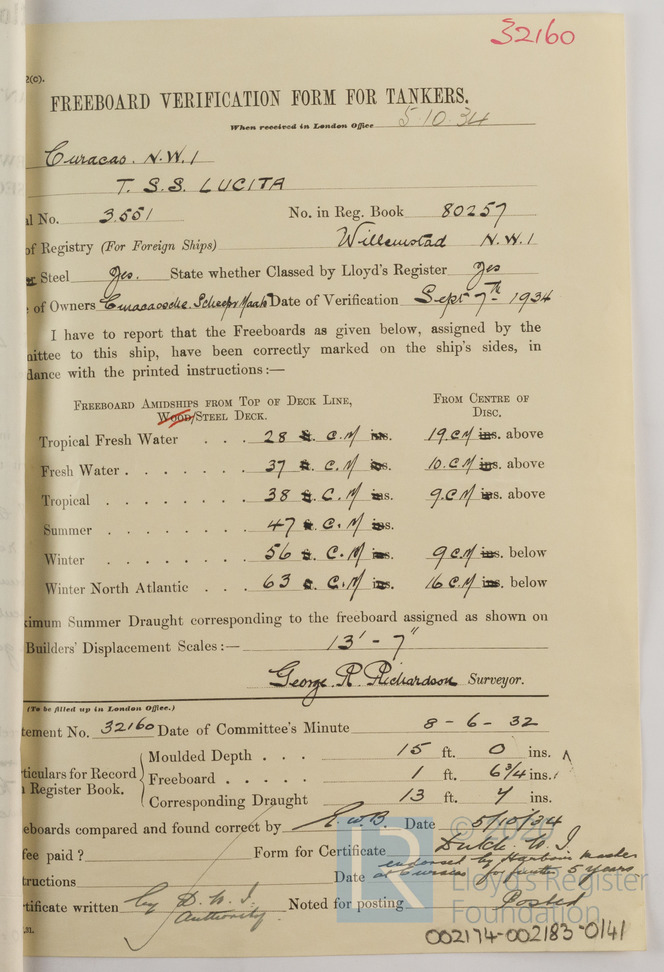 32160
2(c).
FREEBOARD VERIFICATION FORM FOR TANKERS.
When received in London Office 5.10.34
Curacao. N.W.I
T. S.S. LUCITA
l No. 3.551 No. in Reg. Book 80257
of Registry (For Foreign Ships) Willemstad N.W.I
Steel Yes. State whether Classed by Lloyd's Register Yes
of Owners Curacaosche. Scheeps Maats Date of Verification Sept 7th 1934
I have to report that the Freeboards as given below, assigned by the
mittee to this ship, have been correctly marked on the ship's sides, in
dance with the printed instructions:—
FREEBOARD AMIDSHIPS FROM TOP OF DECK LINE, FROM CENTRE OF
WOOD/STEEL DECK. DISC.
Tropical Fresh Water . . . 28 ft. C.M ins. 19 C.M ins. above
Fresh Water . . . . . . . 37 ft. C.M ins. 10 C.M ins. above
Tropical . . . . . . . . 38 ft. C.M ins. 9 C.M ins. above
Summer . . . . . . . . 47 ft. C.M ins.
Winter . . . . . . . . 56 ft. C.M ins. 9 C.M ins. below
Winter North Atlantic . . . 63 ft. C.M ins. 16 C.M ins. below
ximum Summer Draught corresponding to the freeboard assigned as shown on
Builders' Displacement Scales:— 13' - 7"
George R. Richardson Surveyor.
(To be filled up in London Office.)
tement No. 32160 Date of Committee's Minute 8 - 6 - 32
Moulded Depth . . . 15 ft. 0 ins.
ticulars for Record Freeboard . . . . . 1 ft. 6 3/4 ins.
Register Book. Corresponding Draught 13 ft. 7 ins.
eboards compared and found correct by E.W.B. Date 5/10/34
fee paid? Form for Certificate Dutch W.I
endorsed by Harbour Master
tructions Date at Curacao for further 5 years
rtificate written by D.W.I. Authority. Noted for posting Posted
© 2020
Lloyd's Register
Foundation
002174-002183-0141